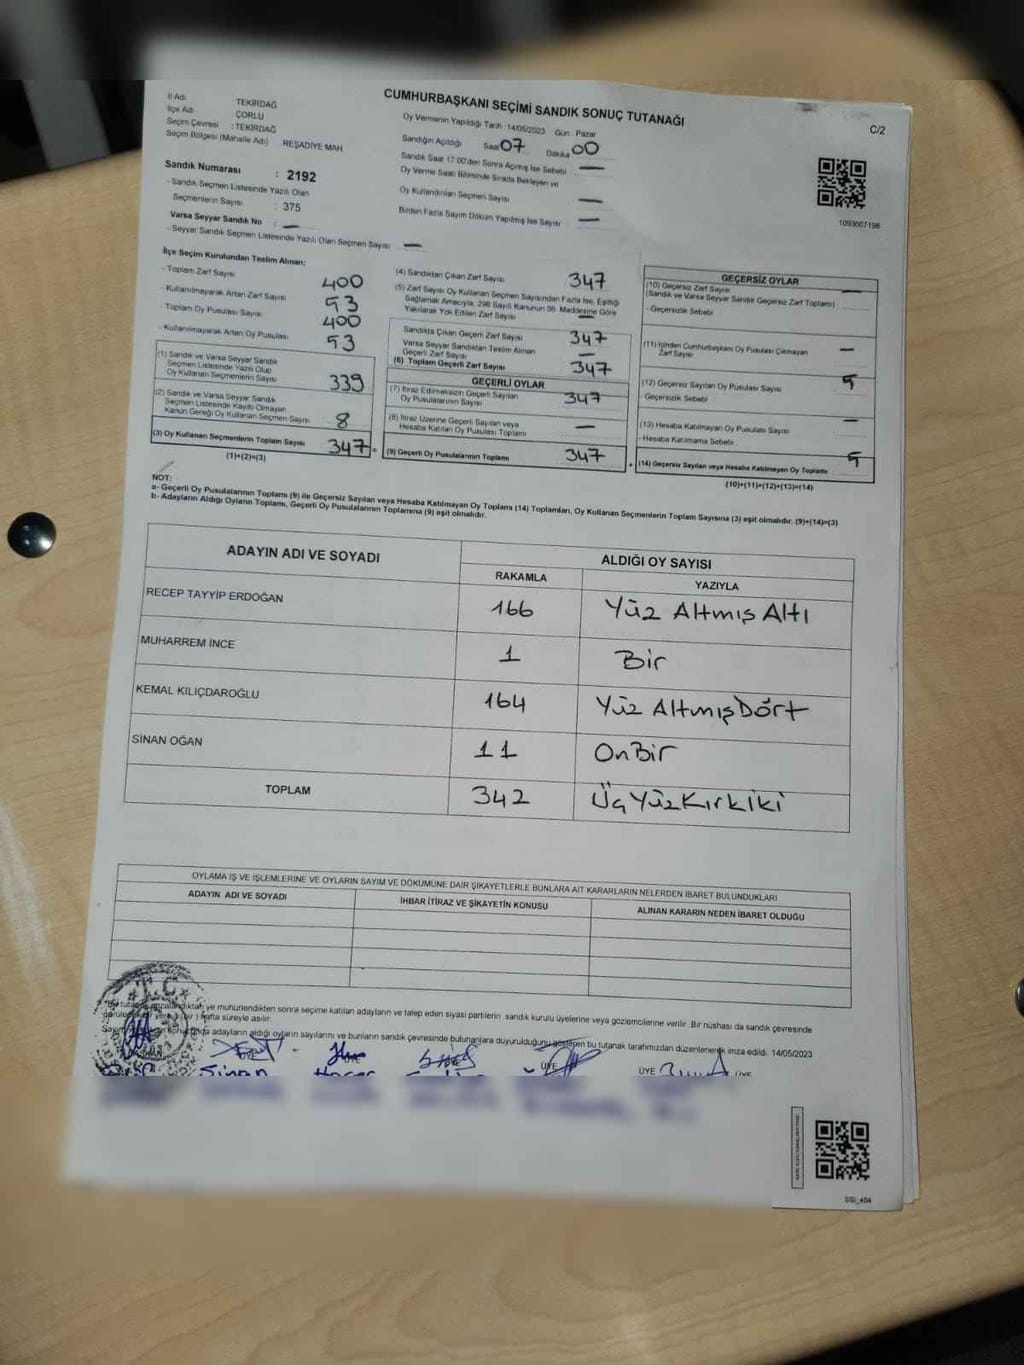 CUMHURBAŞKANI SEÇİMİ SANDIK SONUÇ TUTANAĞI
C/2
İl Adı TEKİRDAĞ
İlçe Adı ÇORLU
Seçim Çevresi : TEKİRDAĞ
Seçim Bölgesi (Mahalle Adı) REŞADİYE MAH.
Sandık Numarası : 2192
- Sandık Seçmen Listesinde Yazılı Olan
Seçmenlerin Sayısı : 375
Varsa Seyyar Sandık No : —
- Seyyar Sandık Seçmen Listesinde Yazılı Olan Seçmen Sayısı —
Oy Vermenin Yapıldığı Tarih : 14/05/2023 Gün : Pazar
Sandığın Açıldığı Saat 07 Dakika 00
Sandık Saat 17:00'den Sonra Açılmış İse Sebebi : —
Oy Verme Saati Bitiminde Sırada Bekleyen ve
Oy Kullandırılan Seçmen Sayısı —
Birden Fazla Sayım Döküm Yapılmış İse Sayısı —
1093607198
İlçe Seçim Kurulundan Teslim Alınan;
- Toplam Zarf Sayısı 400
- Kullanılmayarak Artan Zarf Sayısı 53
- Toplam Oy Pusulası Sayısı 400
- Kullanılmayarak Artan Oy Pusulası 53
(1) Sandık ve Varsa Seyyar Sandık
Seçmen Listesinde Yazılı Olup
Oy Kullanan Seçmenlerin Sayısı 339
(2) Sandık ve Varsa Seyyar Sandık
Seçmen Listesinde Kayıtlı Olmayan
Kanun Gereği Oy Kullanan Seçmen Sayısı 8
(3) Oy Kullanan Seçmenlerin Toplam Sayısı 347 =
(1)+(2)=(3)
(4) Sandıktan Çıkan Zarf Sayısı 347
(5) Zarf Sayısı Oy Kullanan Seçmen Sayısından Fazla İse, Eşitliği
Sağlamak Amacıyla, 298 Sayılı Kanunun 98. Maddesine Göre
Yakılarak Yok Edilen Zarf Sayısı —
Sandıkta Çıkan Geçerli Zarf Sayısı 347
Varsa Seyyar Sandıktan Teslim Alınan
Geçerli Zarf Sayısı —
(6) Toplam Geçerli Zarf Sayısı 347
GEÇERLİ OYLAR
(7) İtiraz Edilmeksizin Geçerli Sayılan
Oy Pusulalarının Sayısı 347
(8) İtiraz Üzerine Geçerli Sayılan veya
Hesaba Katılan Oy Pusulası Toplamı —
(9) Geçerli Oy Pusulalarının Toplamı 347 +
GEÇERSİZ OYLAR
(10) Geçersiz Zarf Sayısı —
(Sandık ve Varsa Seyyar Sandık Geçersiz Zarf Toplamı)
- Geçersizlik Sebebi :
(11) İçinden Cumhurbaşkanı Oy Pusulası Çıkmayan
Zarf Sayısı —
(12) Geçersiz Sayılan Oy Pusulası Sayısı 5
Geçersizlik Sebebi :
(13) Hesaba Katılmayan Oy Pusulası Sayısı —
- Hesaba Katılmama Sebebi :
(14) Geçersiz Sayılan veya Hesaba Katılmayan Oy Toplamı 5
(10)+(11)+(12)+(13)=(14)
NOT:
a- Geçerli Oy Pusulalarının Toplamı (9) ile Geçersiz Sayılan veya Hesaba Katılmayan Oy Toplamı (14) Toplamları, Oy Kullanan Seçmenlerin Toplam Sayısına (3) eşit olmalıdır. (9)+(14)=(3)
b- Adayların Aldığı Oyların Toplamı, Geçerli Oy Pusulalarının Toplamına (9) eşit olmalıdır.
ADAYIN ADI VE SOYADI ALDIĞI OY SAYISI
RAKAMLA YAZIYLA
RECEP TAYYİP ERDOĞAN 166 Yüz Altmış Altı
MUHARREM İNCE 1 Bir
KEMAL KILIÇDAROĞLU 164 Yüz AltmışDört
SİNAN OĞAN 11 OnBir
TOPLAM 342 ÜçYüzKırkiki
OYLAMA İŞ VE İŞLEMLERİNE VE OYLARIN SAYIM VE DÖKÜMÜNE DAİR ŞİKAYETLERLE BUNLARA AİT KARARLARIN NELERDEN İBARET BULUNDUKLARI
ADAYIN ADI VE SOYADI İHBAR İTİRAZ VE ŞİKAYETİN KONUSU ALINAN KARARIN NEDEN İBARET OLDUĞU
ve mühürlendikten sonra seçime katılan adayların ve talep eden siyasi partilerin sandık kurulu üyelerine veya gözlemcilerine verilir .Bir nüshası da sandık çevresinde
hafta süreyle asılır.
adayların aldığı oyların sayılarını ve bunların sandık çevresinde bulunanlara duyurulduğunu gösteren bu tutanak tarafımızdan düzenlenerek imza edildi. 14/05/2023
ÜYE ÜYE ÜYE
Sinan
SSİ_404